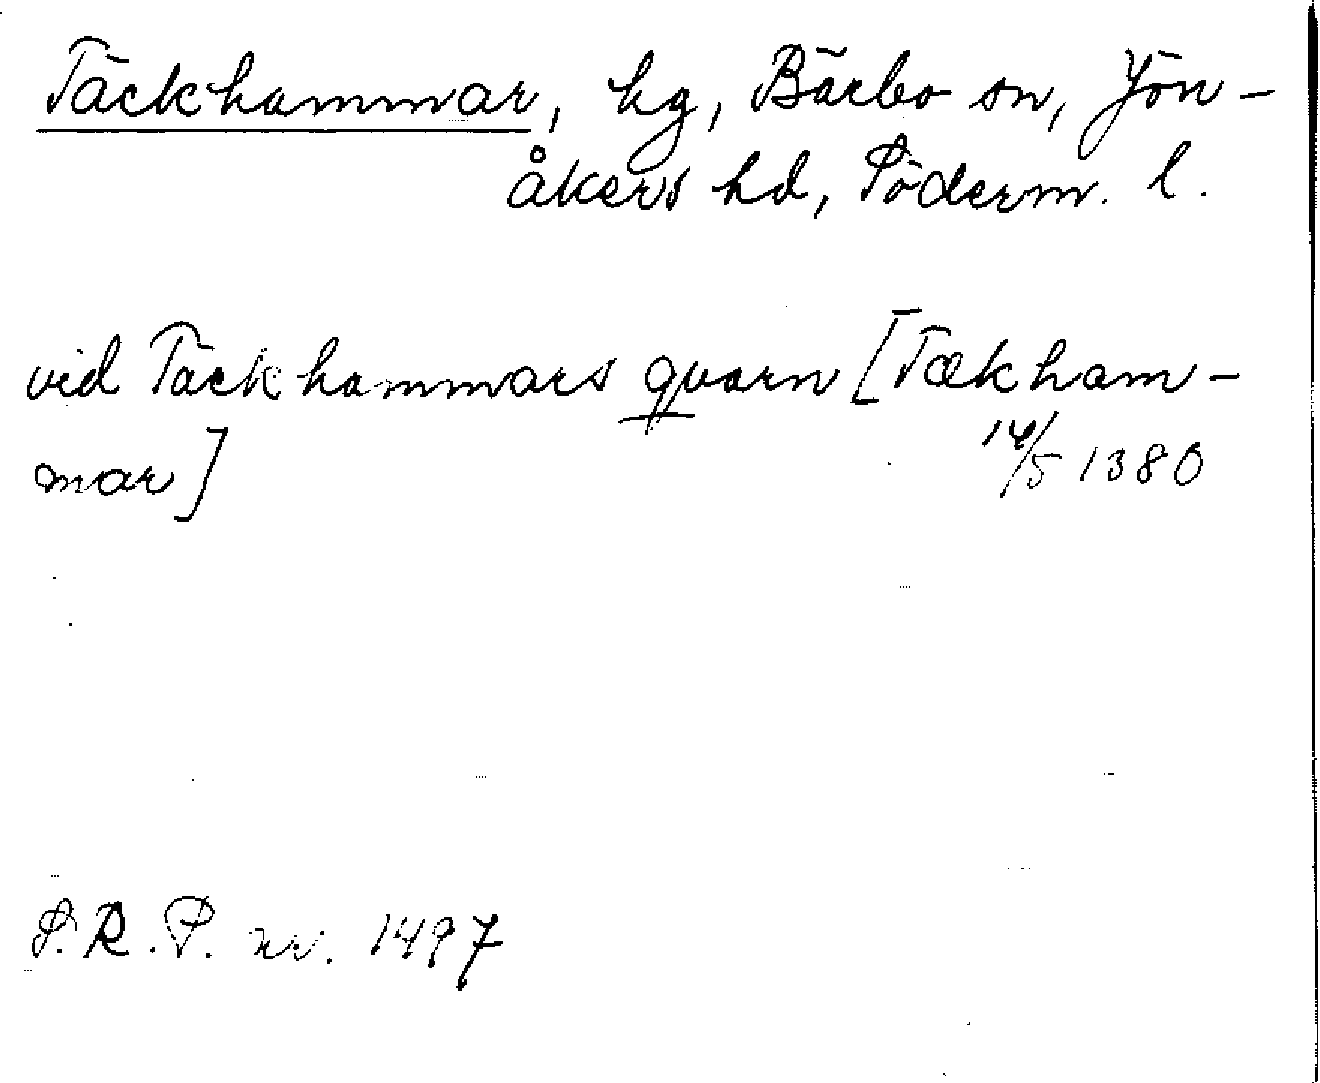 Täckhammar, hg, Bärbo sn, Jön-
åkers hd, Söderm. l.
vid Täckhammars qvarn [Tækham-
mar]
14/5 1380
S.R.P. nr. 1497